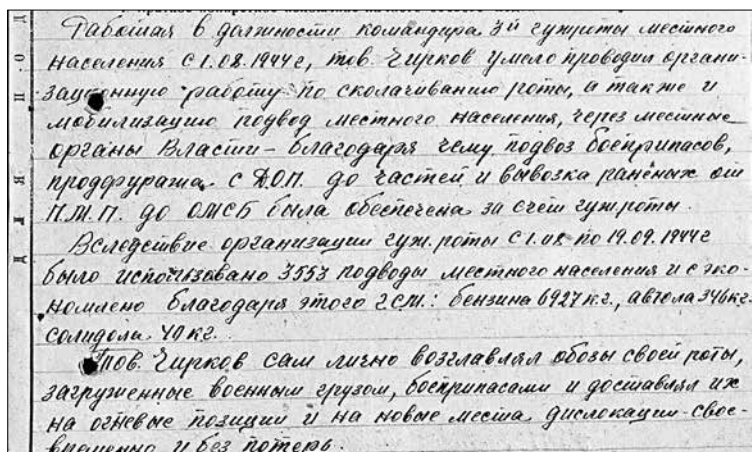 Работая в должности командира 3й гужроты местного
населения с 1.08.1944г, тов. Чирков умело проводил органи-
зационную работу по сколачиванию роты, а также и
мобилизацию подвод местного населения, через местные
органы Власти – благодаря чему подвоз боеприпасов,
продфуража с Д.О.П. до частей и вывозка раненых от
П.М.П. до ОМСБ была обеспечена за счет гужроты.
Вследствие организации гуж.роты с 1.08 по 19.09.1944г
было использовано 3553 подводы местного населения и сэко-
номлено благодаря этого ГСМ: бензина 6927 кг., автола 346кг.
солидола 40 кг.
Тов. Чирков сам лично возглавлял обозы своей роты,
загруженные военным грузом, боеприпасами и доставлял их
на огневые позиции и на новые места дислокации свое-
временно и без потерь.